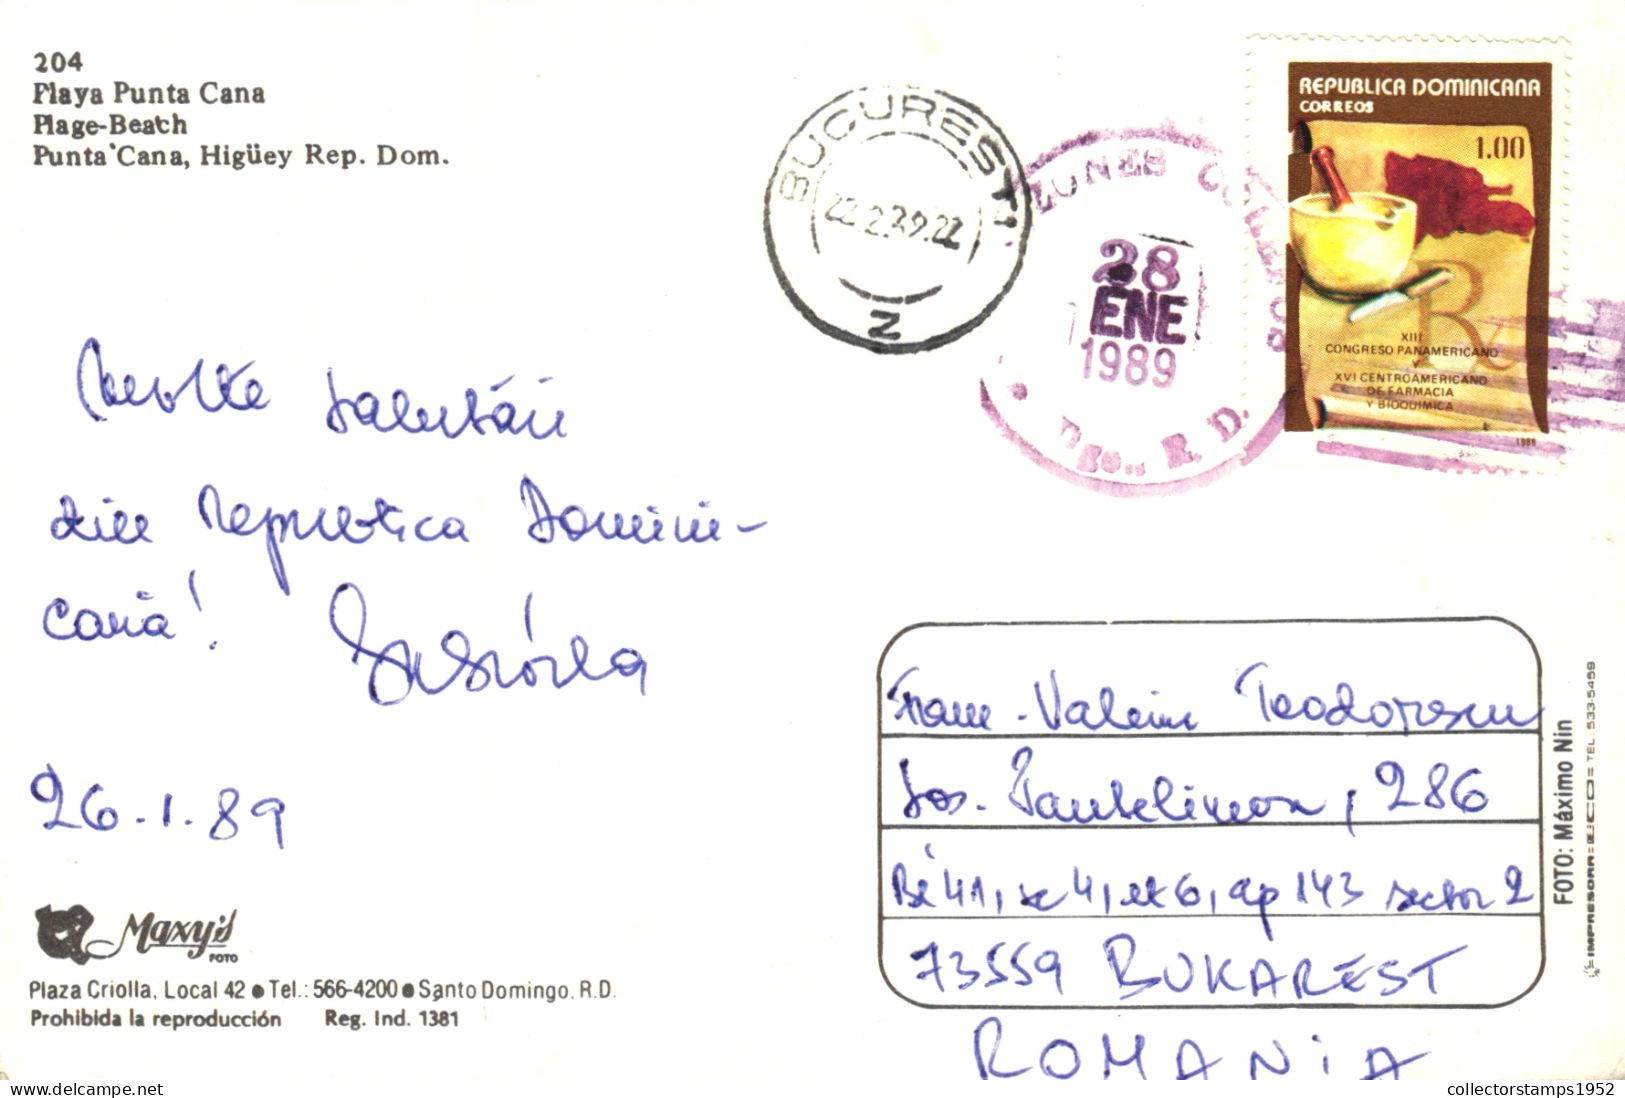 204
Playa Punta Cana
Plage-Beach
Punta Cana, Higüey Rep. Dom.
BUCURESTI
22.2.89.22
2
28
ENE
1989
Dgo., R. D.
REPUBLICA DOMINICANA
CORREOS
1.00
XIII
CONGRESO PANAMERICANO
Y
XVI CENTROAMERICANO
DE FARMACIA
Y BIOQUIMICA
Multe salutări
din Republica Domini-
cană!
26.1.89
Valeriu Teodorescu
Sos. Pantelimon, 286
Bl 41, sc 4, et 6, ap 143 sector 2
73559 BUKAREST
ROMANiA
FOTO: Máximo Nin
IMPRESORA=ECO=TEL. 533-5459
Maxy's
FOTO
Plaza Criolla, Local 42 ● Tel.: 566-4200 ● Santo Domingo, R.D.
Prohibida la reproducción Reg. Ind. 1381
delcampe.net
collectorstamps1952